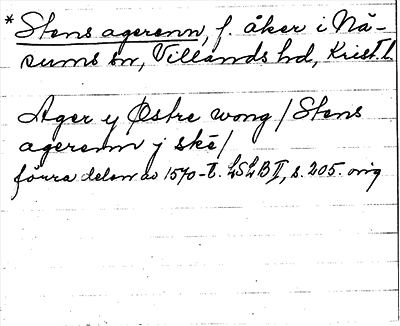 *Stens agerenn, f. åker i Nä-
sums sn, Villands hd, Krist. l.
Ager y Østre wong / Stens
agerenn j skē/
förra delen av 1570-t. LSLB II, s. 205. orig